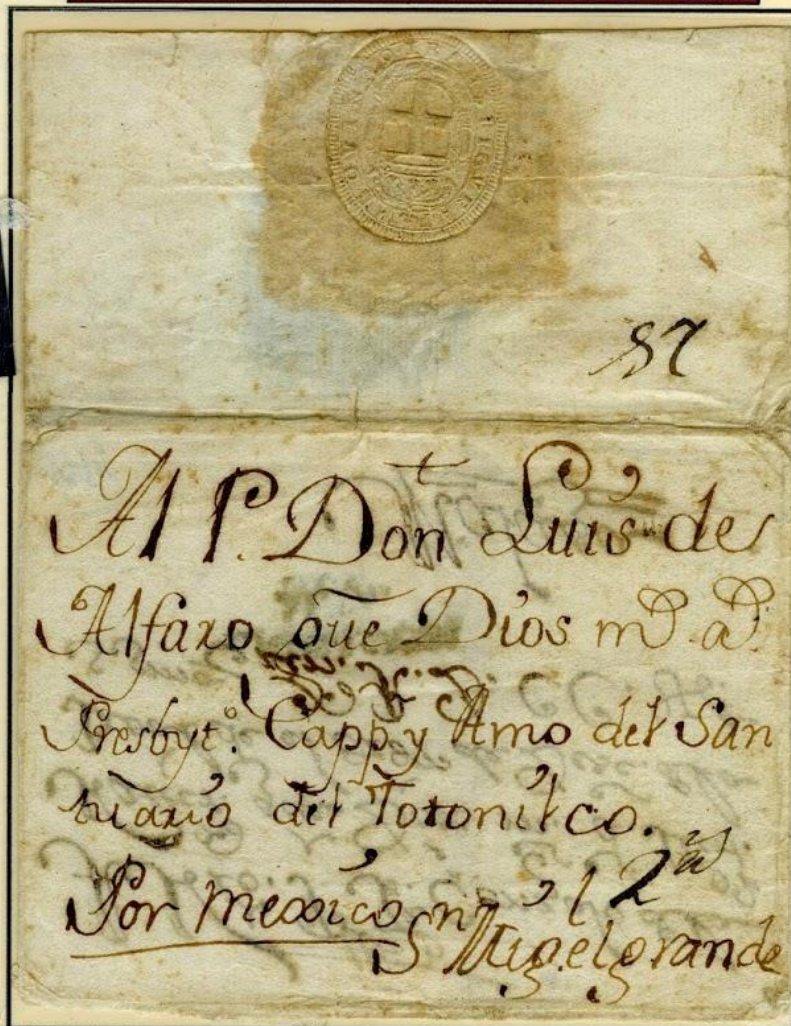 57
Al P. Don Luis de
Alfaro que Dios m.ˢ a.ˢ
Presbyt.º Capp.ⁿ y Amo del San
tuario del Totonilco.
Por Mexico
2ª
S Migel grande